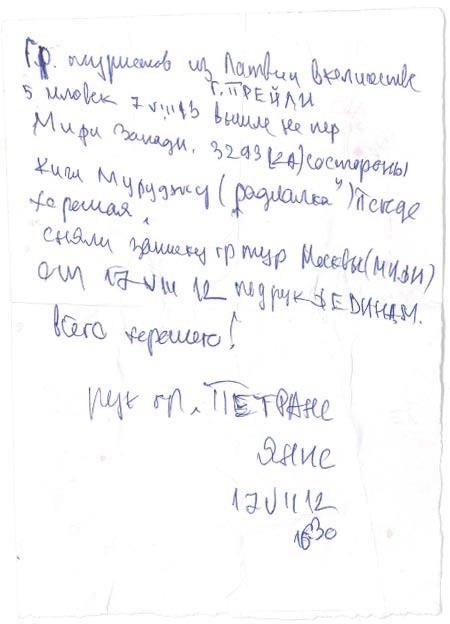 Гр. туристов из Латвии в количестве
г. ПРЕЙЛИ
5 человек 7 VIII 13 вышли на пер
Мифи Запади. 3293 (2А) со стороны
Кичи Муруджу (радиалка") Погода
хорошая.
сняли записку гр тур Москвы (МИФИ)
от 17 VIII 12 под рук
всего хорошего!
рук гр. ПЕТРАНС
ЯНИС
17 VII 12
16 30